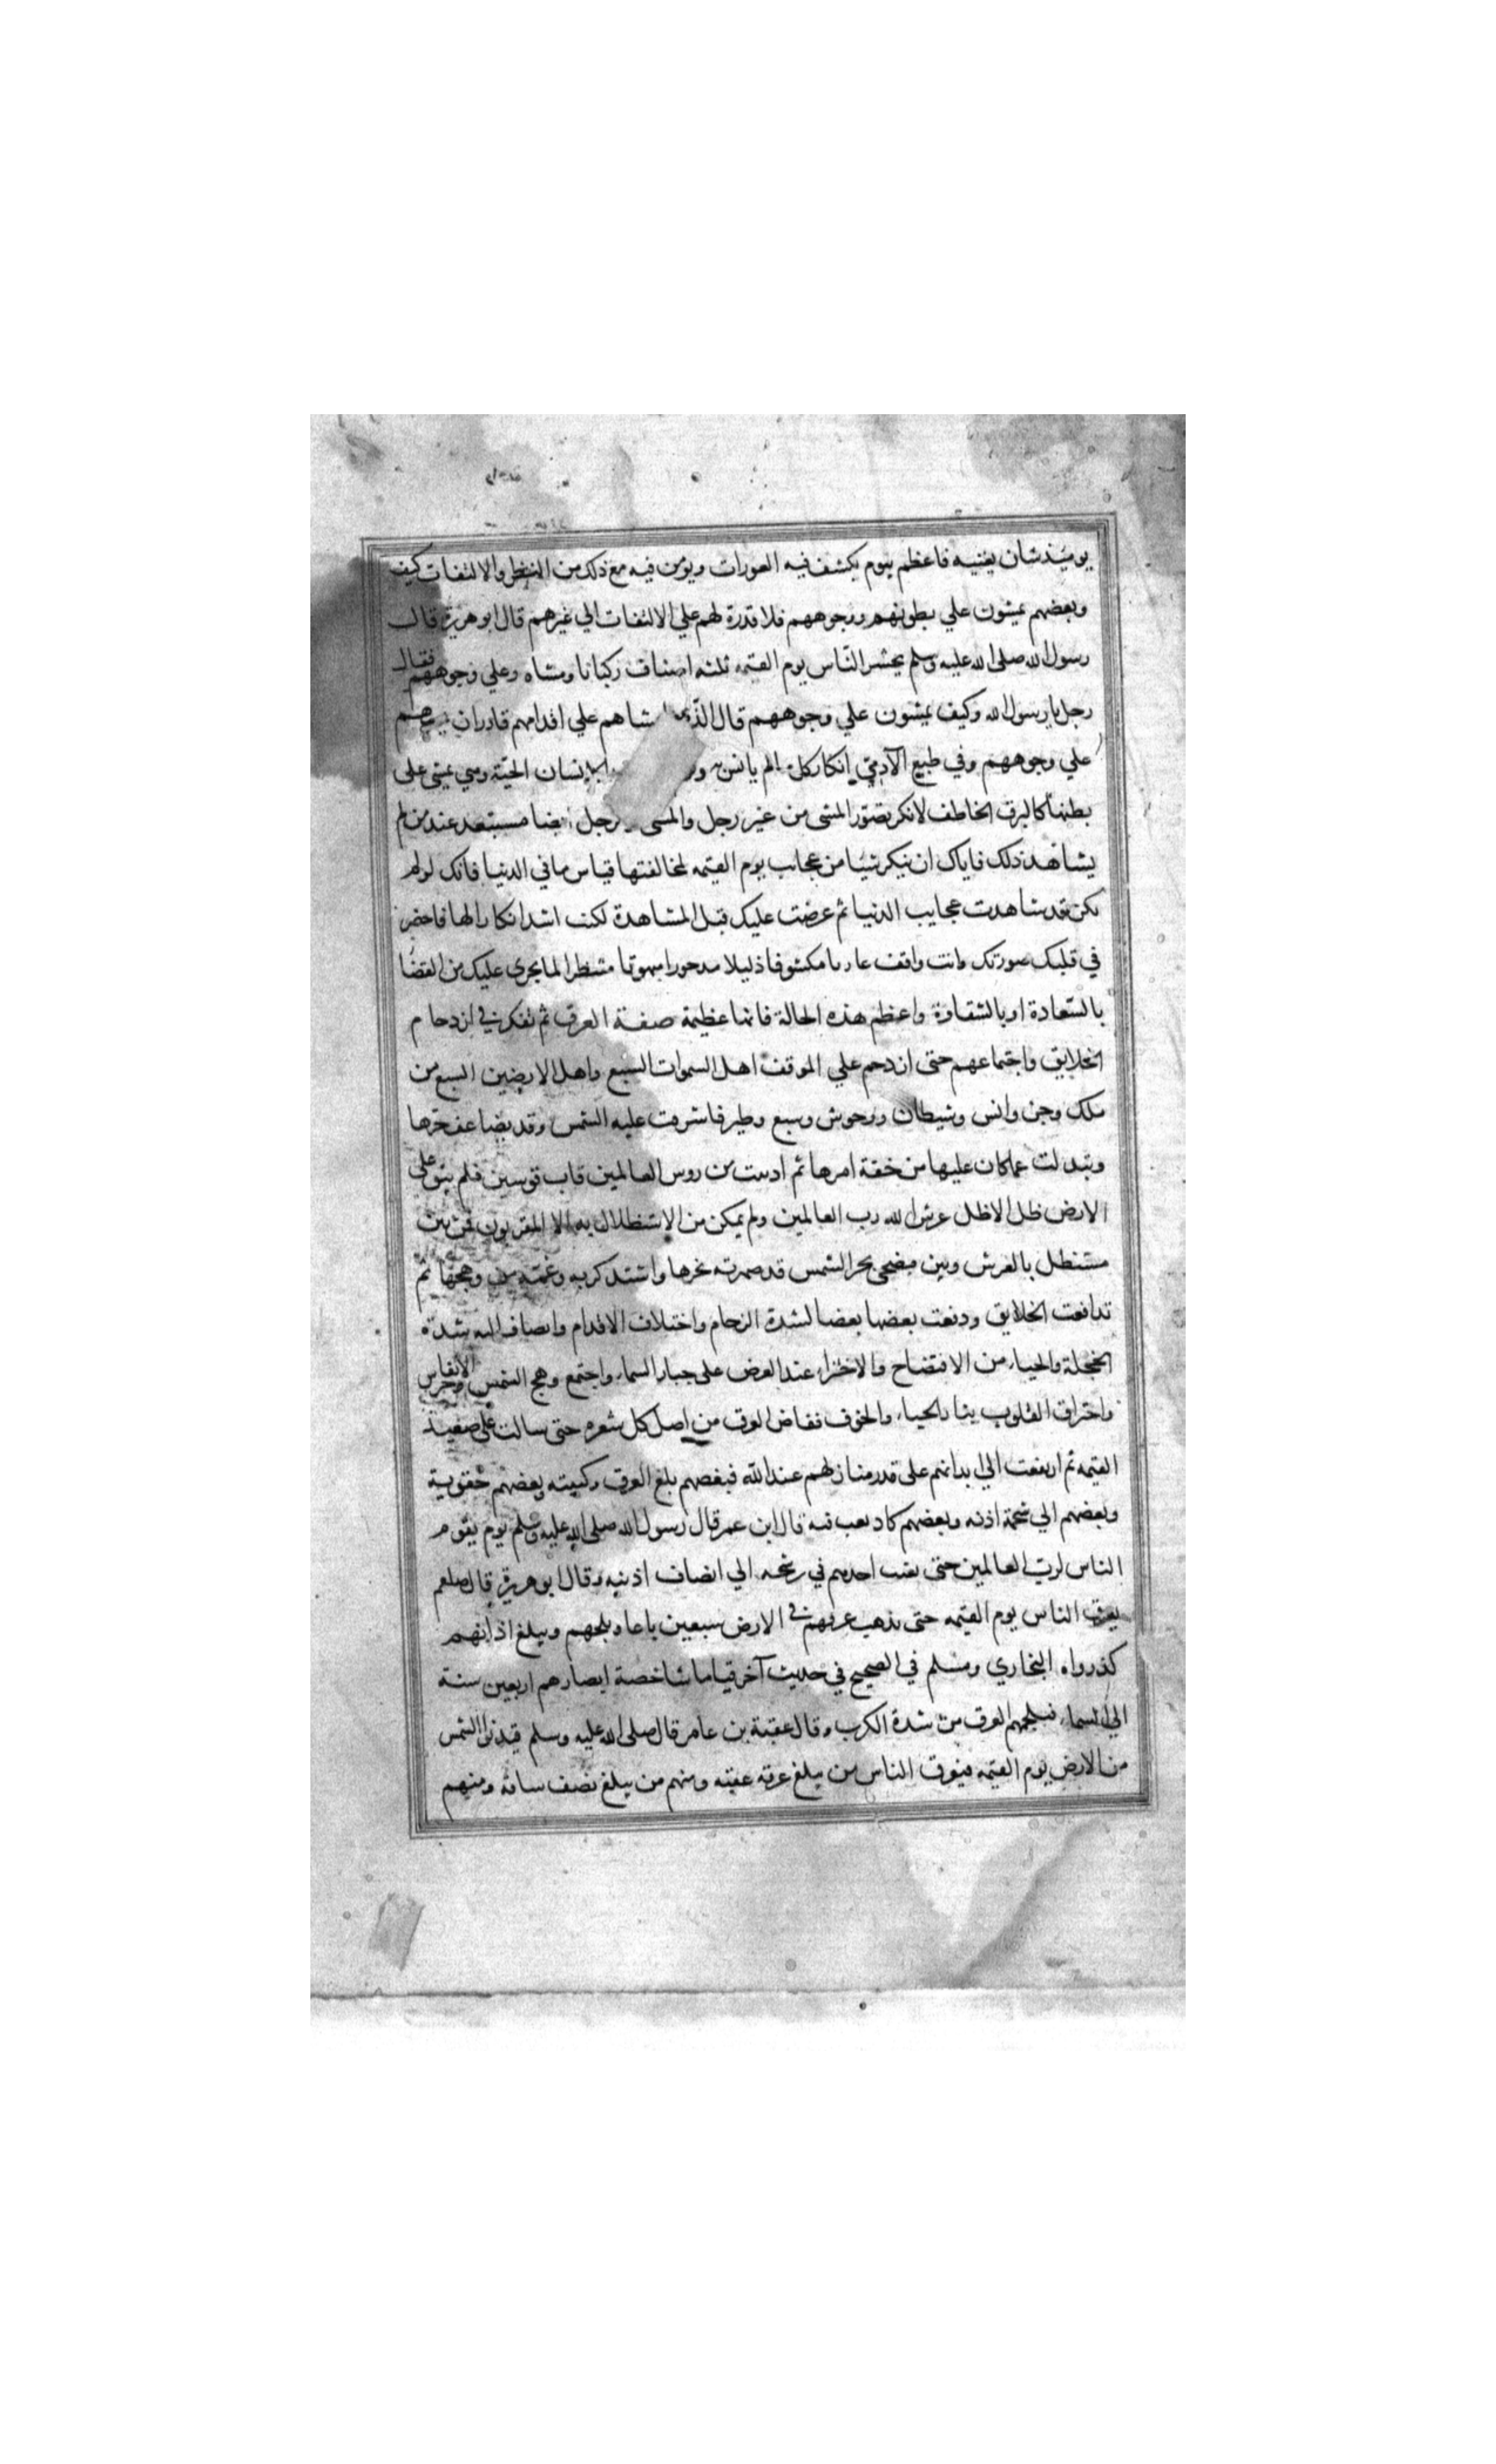 يوميذ شان يغنيه فاعظم بيوم يكشف فيه العورات ويؤمن فيه مع ذلك من النظر والالتفات كيف
وبعضهم يمشون علي بطونهم ووجوههم فلا قدرة لهم علي الالتفات الي غيرهم قال ابو هريرة قال
رسول الله صلى الله عليه وسلم يحشر الناس يوم القيمه ثلثه اصناف ركبانا ومشاه وعلي وجوههم فقال
رجل يا رسول الله وكيف يمشون علي وجوههم قال الذي شاهم علي اقدامهم قادر ان
علي وجوههم وفي طبع الآدمي انكار كل لم يانس به الانسان الحية وهي تمشي على
بطنها كالبرق الخاطف لانكر تصور المشى من غير رجل والمشى رجل ايضا مستبعد عند من لم
يشاهد ذلك فاياك ان تنكر شيا من عجايب يوم القيمه لمخالفتها قياس ما في الدنيا فانك لو لم
تكن قد شاهدت عجايب الدنيا ثم عرضت عليك قبل المشاهدة لكنت اشد انكارا لها فاحضر
في قلبك صورتك وانت واقف عاريا مكشوفا ذليلا مدحورا مبهوتا منتظرا لما يجرى عليك من القضا
بالسعادة او بالشقاوة واعظم هذه الحالة فانها عظيمة صفة العرق ثم تفكر في ازدحام
الخلايق واجتماعهم حتى ازدحم علي الموقف اهل السموات السبع واهل الارضين السبع من
ملك وجن وانس وشيطان ووحوش وسبع وطير فاشرقت عليه الشمس وقد تضاعف حرها
وتبدلت عما كان عليها من خفة امرها ثم ادنيت من روس العالمين قاب قوسين فلم يبق على
الارض ظل الا ظل عرش الله رب العالمين ولم يمكن من الاستظلال به الا المقربون فمن بين
مستظل بالعرش وبين مضحى بحر الشمس قد صهرته بحرها واشتد كربه وغمه من وهجها ثم
تدافعت الخلايق ودفعت بعضها بعضا لشدة الزحام واختلاف الاقدام وانضاف اليه شدة
الخجلة والحياء من الافتضاح والاختزاء عند العرض على جبار السماء واجتمع وهج الشمس وحر الانفاس
واحتراق القلوب بنار الحياء والخوف ففاض العرق من اصل كل شعره حتى سالت على صعيد
القيمه ثم ارتفعت الي ابدانهم على قدر منازلهم عند الله فبعضهم بلغ العرق ركبيته وبعضهم حقويه
وبعضهم الي شحمة اذنه وبعضهم كاد يغيب فيه قال ابن عمر قال رسول الله صلى الله عليه وسلم يوم يقوم
الناس لرب العالمين حتى يغيب احدهم في رشحه الي انصاف اذنيه وقال ابو هريرة قال صلعم
يعرق الناس يوم القيمه حتى يذهب عرقهم في الارض سبعين باعا ويلجمهم ويبلغ اذانهم
كذا رواه البخاري ومسلم في الصحيح في حديث آخر قياما شاخصة ابصارهم اربعين سنة
الي السماء فيلجمهم العرق من شدة الكرب وقال عقبة بن عامر قال صلى الله عليه وسلم الشمس
من الارض يوم القيمه فيعرق الناس من يبلغ عرقه عقبه ومنهم من يبلغ نصف ساقه ومنهم